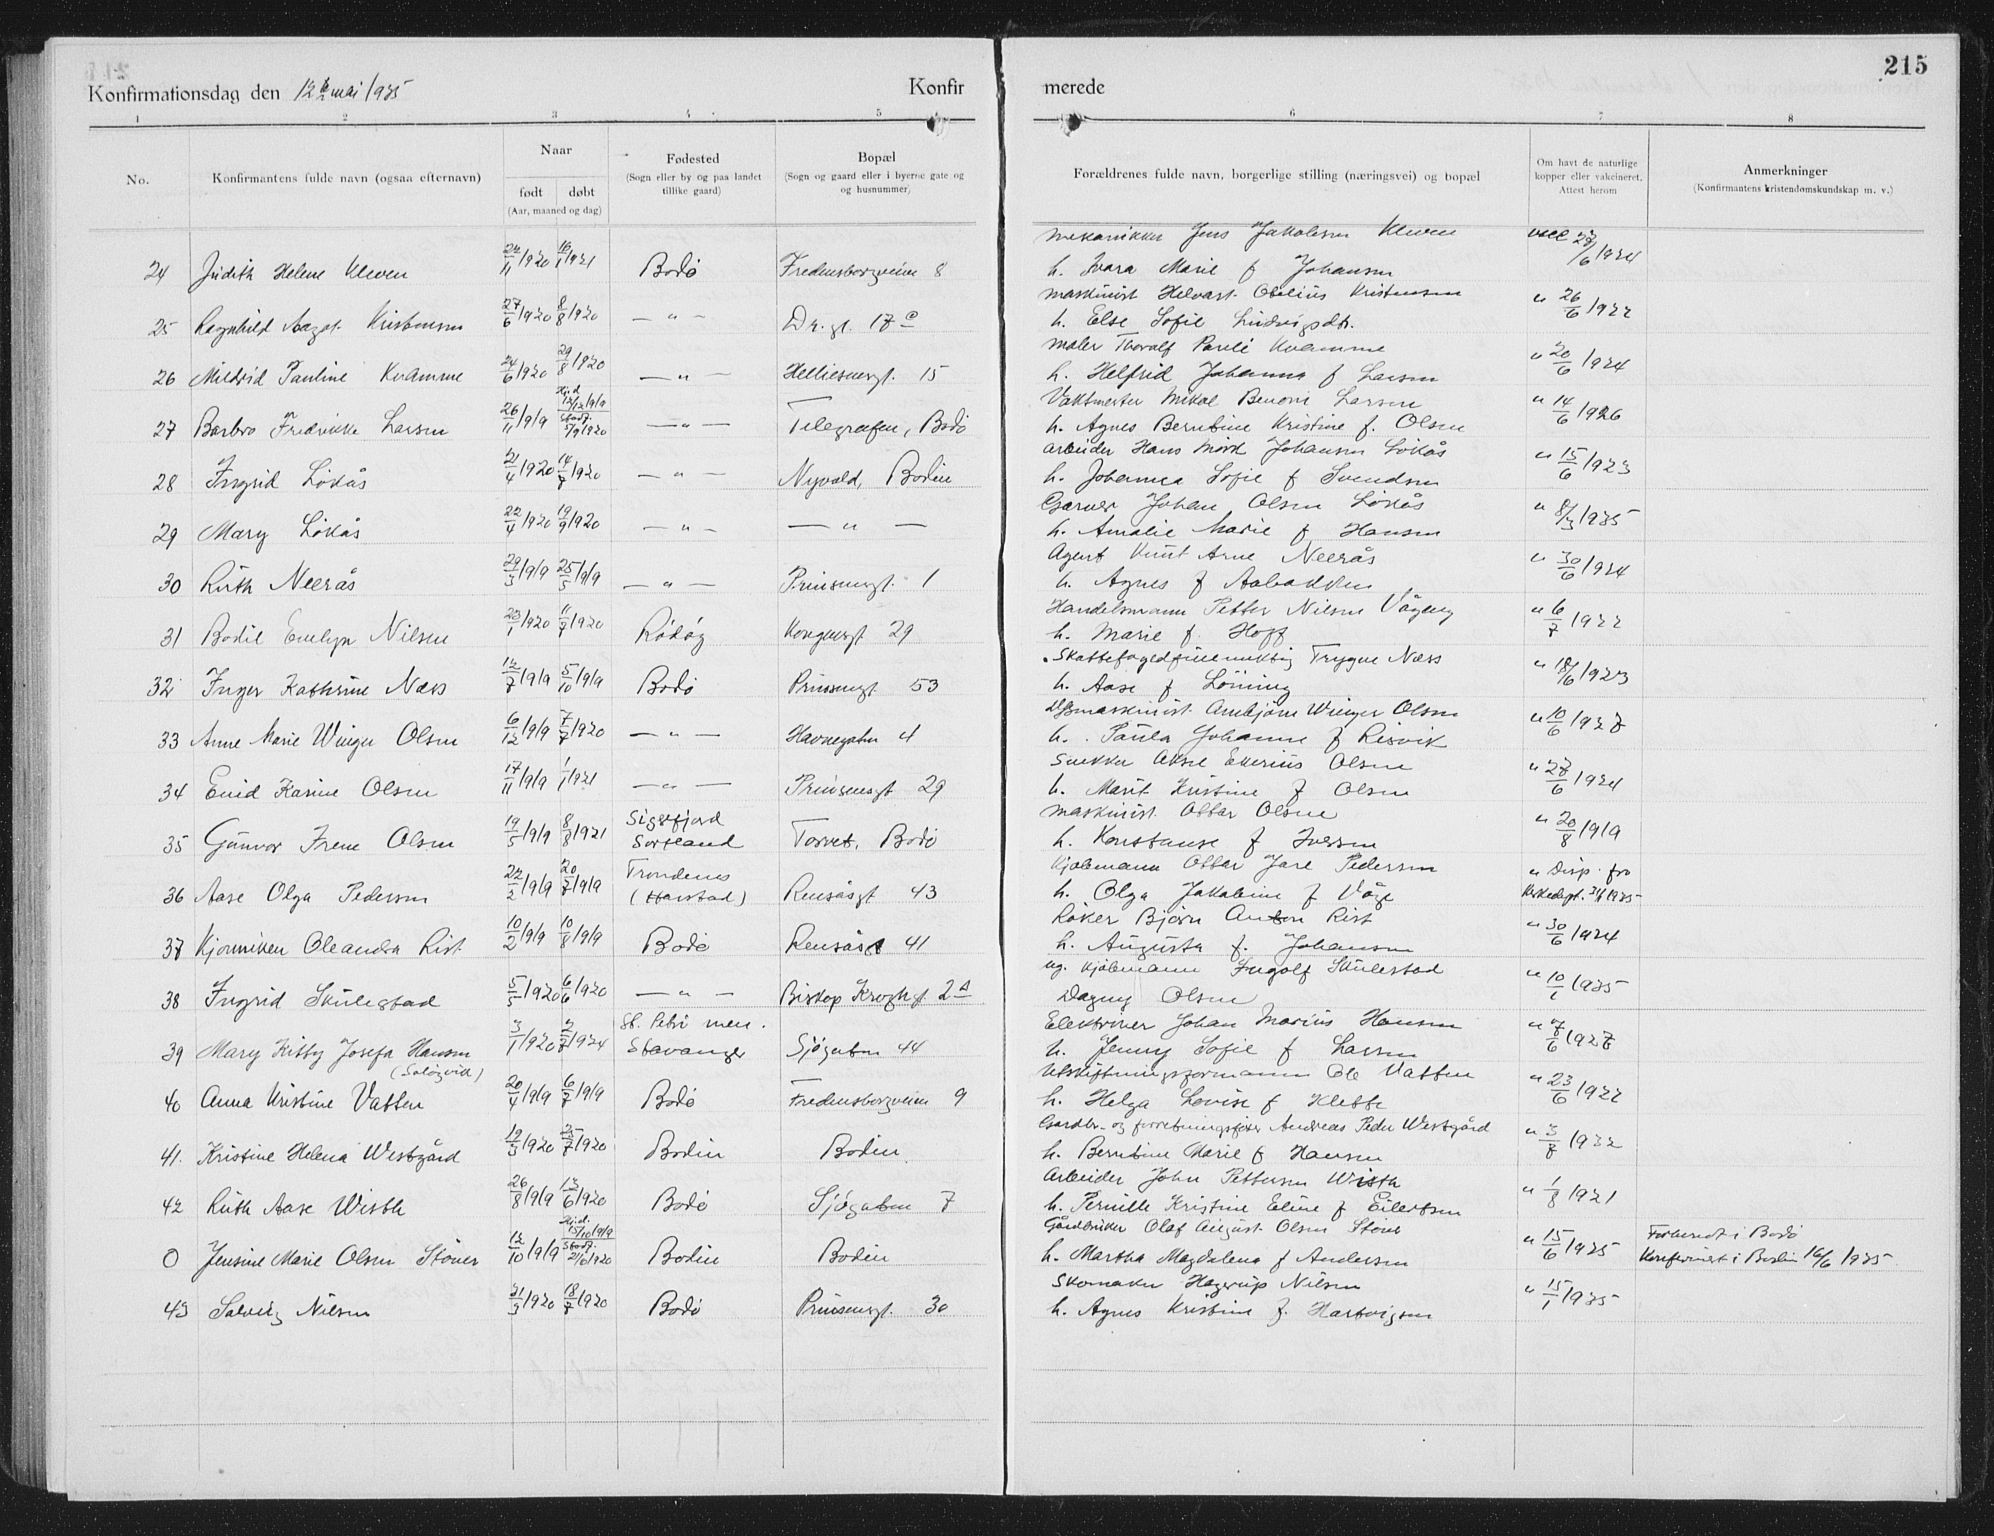 215
Konfirmationsdag den 12te mai 1935 Konfir merede
1 2 3 4 5 6 7 8
No. Konfirmantens fulde navn (ogsaa efternavn) Naar født døbt (Aar, maaned og dag) Fødested (Sogn eller by og paa landet tillike gaard) Bopæl (Sogn og gaard eller i byerne gate og og husnummer) Forældrenes fulde navn, borgerlige stilling (næringsvei) og bopæl Om havt de naturlige kopper eller vakcineret. Attest herom Anmerkninger (Konfirmantens kristendomskundskap m. v.)
mekanikker Jens Jakobsen Kleven
24 Judith Helene Kleven 24/11 1920 16/1 1921 Bodø Fredensborgveien 8 h. Ivara Marie f Johansen
maskinist Helvart Obelius Kristensen
25 Ragnhild Aagot Kristensen 27/6 1920 8/8 1920 — " — Dr.gt. 17 c h. Else Sofie Ludvigsdtr. " 26/6 1922
maler Thoralf Pauli Kvamme
26 Mildrid Pauline Kvamme 24/6 1920 29/8 1920 — " — Helliesensgt. 15 h. Helfrid Johanna f Larsen " 20/6 1924
Vaktmester Mikal Benoni Larsen
27 Barbro Fredrikke Larsen 26/11 1919 Hjd. 12/12 1919 Stadf. 5/9 1920 — " — Telegrafen, Bodø h. Agnes Berntine Kristine f. Olsen " 14/6 1926
arbeider Hans Johansen Løkås
28 Ingrid Løkås 21/4 1920 14/7 1920 — " — Nyvold, Bodin h. Johanna Sofie f Svendsen " 15/6 1923
Garver Johan Olsen Løkås
29 Mary Løkås 22/4 1920 19/9 1920 — " — — " — h. Amalie Marie f Hansen " 8/3 1935
Agent Knut Arne Neerås
30 Ruth Neerås 29/3 1919 25/5 1919 — " — Prinsensgt. 1 h. Agnes f Aabakken " 30/6 1924
Handelsmann Petter Nilsen Vågeng
31 Bodil Emelyn Nilsen 23/1 1920 11/7 1920 Rødøy Kongensgt 29 h. Marie f. Hoff " 6/7 1922
Skattefogedfullmektig Trygve Næss
32 Inger Kathrine Næss 12/7 1919 5/10 1919 Bodø Prinsensgt 53 h. Aase f Lønning " 18/6 1923
maskinist Arnbjørn Winger Olsen
33 Anne Marie Winger Olsen 6/12 1919 7/7 1920 — " — Havnegaten 4 h. Paula Johanne f Risvik " 10/6 1927
Snekker Aksel Olsen
34 Enid Karine Olsen 17/11 1919 1/1 1921 — " — Prinsensgt 29 h. Marit Kristine f Olsen " 27/6 1924
maskinist Ottar Olsen
35 Gunvor Irene Olsen 19/5 1919 8/8 1921 Sigerfjord Sortland Torvet, Bodø h. Konstanse f Iversen " 20/8 1919
Kjøbmann Ottar Jarl Pedersen
36 Aase Olga Pedersen 22/2 1919 20/7 1919 Trondenes (Harstad) Rensåsgt 43 h. Olga Jakobine f Våge " Disp. fra Kirkedept.
Røker Bjørn Anton Rist
37 Kjønniken Oleanda Rist 10/2 1919 10/8 1919 Bodø Rensåsgt 41 h. Augusta f. Johansen " 30/6 1924
ug. Kjøbmann Ingolf Skulestad
38 Ingrid Skulestad 5/5 1920 6/6 1920 — " — Biskop Kroghgt 2 A Dagny Olsen " 10/1 1935
Elektriker Johan Marius Hansen
39 Mary Kitty Josefa Hansen (Saløyvik) 3/1 1920 2/7 1924 St. Petri men. Stavanger Sjøgaten 44 h. Jenny Sofie f Larsen " 7/6 1927
Utskiftningsformann Ole Vatten
40 Anna Kristine Vatten 20/4 1919 6/7 1919 Bodø Fredensborgveien 9 h. Helga Lovise f Klette " 23/6 1922
Gardbr- og forretningsfører Andreas Peder Westgård
41. Kristine Helena Westgård 19/3 1920 25/7 1920 Bodin Bodin h. Berntine Marie f Hansen " 3/8 1932
Arbeider John Pettersen Wisth
42 Ruth Aase Wisth 26/8 1919 13/6 1920 Bodø Sjøgaten 7 h. Pernille Kristine Eline f Eilertsen " 1/8 1921
Gårdbruker Olaf August Olsen Støver
0 Jensine Marie Olsen Støver 12/10 1919 Hjd. 15/10 1919 Stadf. 21/6 1920 Bodin Bodin h. Martha Magdalena f Andersen " 15/6 1935 Forberedt i Bodø Konfirmert i Bodin 16/6 1935
Skomaker Hagerup Nilsen
43 Solveig Nilsen 21/3 1920 18/7 1920 Bodø Prinsensgt. 30 h. Agnes Kristine f. Hartvigsen " 15/1 1935